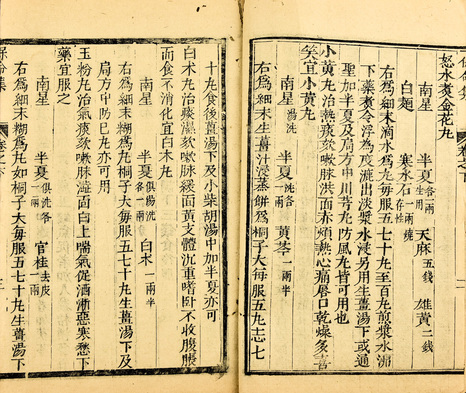 卷之下
怒水煮金花丸
南星 半夏各一兩生用 天麻五錢 雄黃二錢
白麵 寒水石一兩燒存性
右爲細末滴水爲丸每服五七十丸至百丸煎漿水沸
下藥煮令浮爲度漉出淡漿水浸另用生薑湯下或通
聖加半夏及局方中川芎丸防風丸皆可用也
小黃丸治熱痰欬嗽脉洪面赤煩熱心痛唇口乾燥多喜
笑宜小黃丸
南星湯洗 半夏洗各一兩 黃芩一兩半
右爲細末生薑汁浸蒸餅爲丸桐子大每服五七
十丸食後薑湯下及小柴胡湯中加半夏亦可
白朮丸治痰濕欬嗽脉緩面黃支體沉重嗜卧不收腹脹
而食不消化宜白朮丸
南星 半夏俱湯洗各一兩 白朮一兩半
右爲細末糊爲丸如桐子大每服五七十丸生薑湯下及
局方中防己丸亦可用
玉粉丸治氣痰欬嗽脉澁面白上喘氣促洒淅惡寒愁下
藥宜服之
南星 半夏俱洗各一兩 官桂去皮一兩
右爲細末糊爲丸如桐子大每服五七十丸生薑湯下
保命集 卷之下